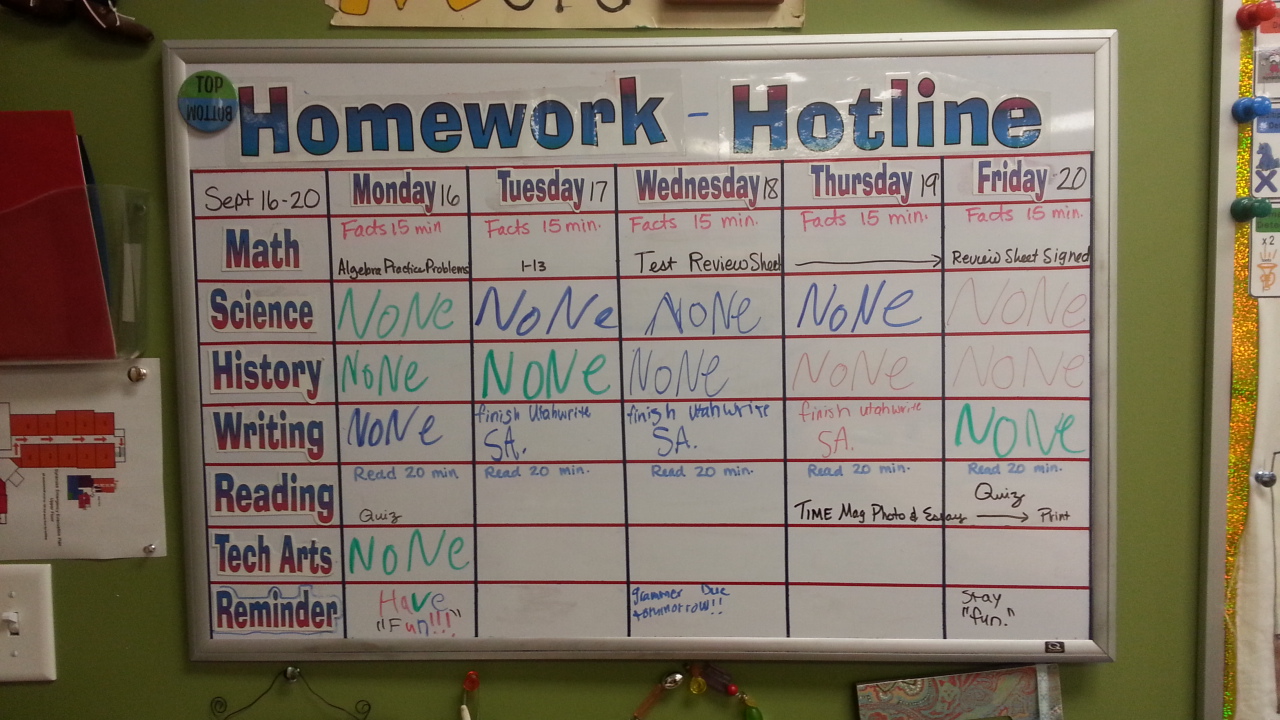 TOP
BOTTOM
Homework - Hotline
Sept 16-20 Monday 16 Tuesday 17 Wednesday 18 Thursday 19 Friday 20
Math
Facts 15 min Facts 15 min. Facts 15 min. Facts 15 min. Facts 15 min.
Algebra Practice Problems 1-13 Test Review Sheet Review Sheet Signed
Science NoNe NoNe NoNe NoNe NoNe
History NoNe NoNe NoNe NoNe NoNe
Writing NoNe finish Utahwrite finish Utahwrite finish utahwrite NoNe
SA. SA. SA.
Reading
Read 20 min Read 20 min. Read 20 min. Read 20 min. Read 20 min.
Quiz TIME Mag Photo & Essay Quiz
Print
Tech Arts NoNe
Reminder
Have grammer Due Stay
"Fun!!!" tomorrow!! "fun."
x2